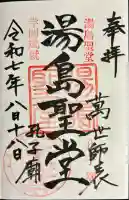 奉拝
萬世師表
湯島聖堂
孔子廟
令和七年八月十八日